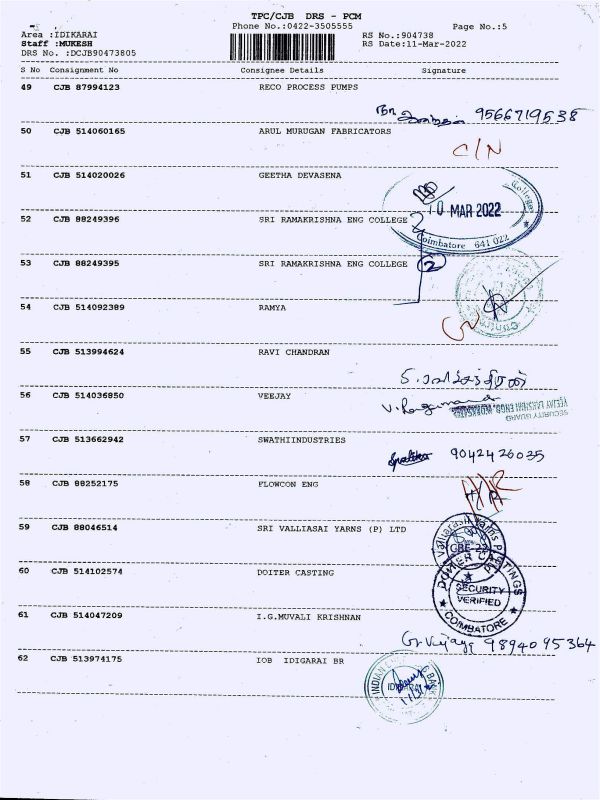 TPC/CJB DRS - PCM
Phone No.:0422-3505555 Page No.:5
Area :IDIKARAI RS No.:904738
Staff :MUKESH RS Date:11-Mar-2022
DRS No. :DCJB90473805
S No Consignment No Consignee Details Signature
49 CJB 87994123 RECO PROCESS PUMPS
9566719538
50 CJB 514060165 ARUL MURUGAN FABRICATORS
C/N
51 CJB 514020026 GEETHA DEVASENA
College
10 MAR 2022
52 CJB 88249396 SRI RAMAKRISHNA ENG COLLEGE
Coimbatore 641 022
53 CJB 88249395 SRI RAMAKRISHNA ENG COLLEGE 2
54 CJB 514092389 RAMYA
55 CJB 513994624 RAVI CHANDRAN
56 CJB 514036850 VEEJAY
SECURITY GUARD
57 CJB 513662942 SWATHIINDUSTRIES
9042426035
58 CJB 88252175 FLOWCON ENG
59 CJB 88046514 SRI VALLIASAI YARNS (P) LTD
60 CJB 514102574 DOITER CASTING
DOITER CASTINGS
SECURITY
VERIFIED
COIMBATORE
61 CJB 514047209 I.G.MUVALI KRISHNAN
9894095364
62 CJB 513974175 IOB IDIGARAI BR
INDIAN BANK